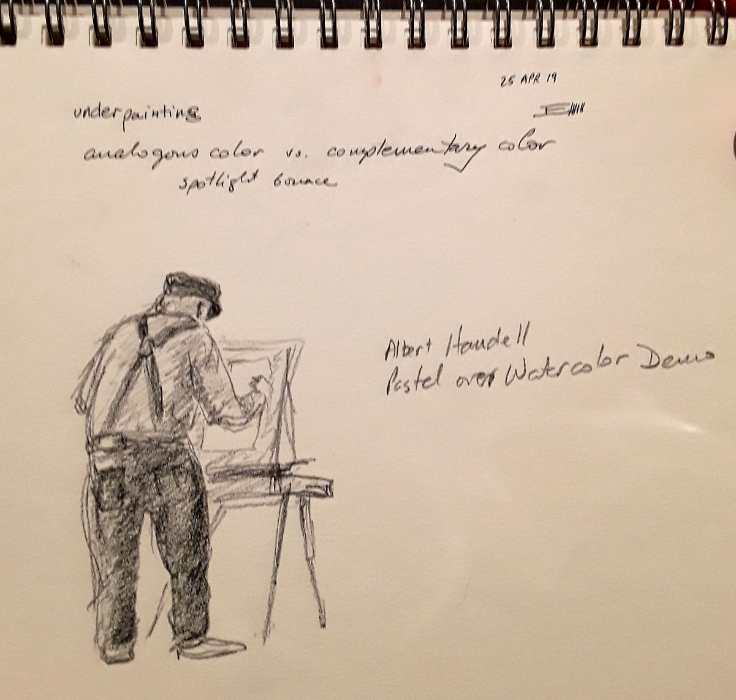 25 APR 19
underpainting
analogous color vs. complementary color
spotlight bounce
Albert Handell
Pastel over Watercolor Demo